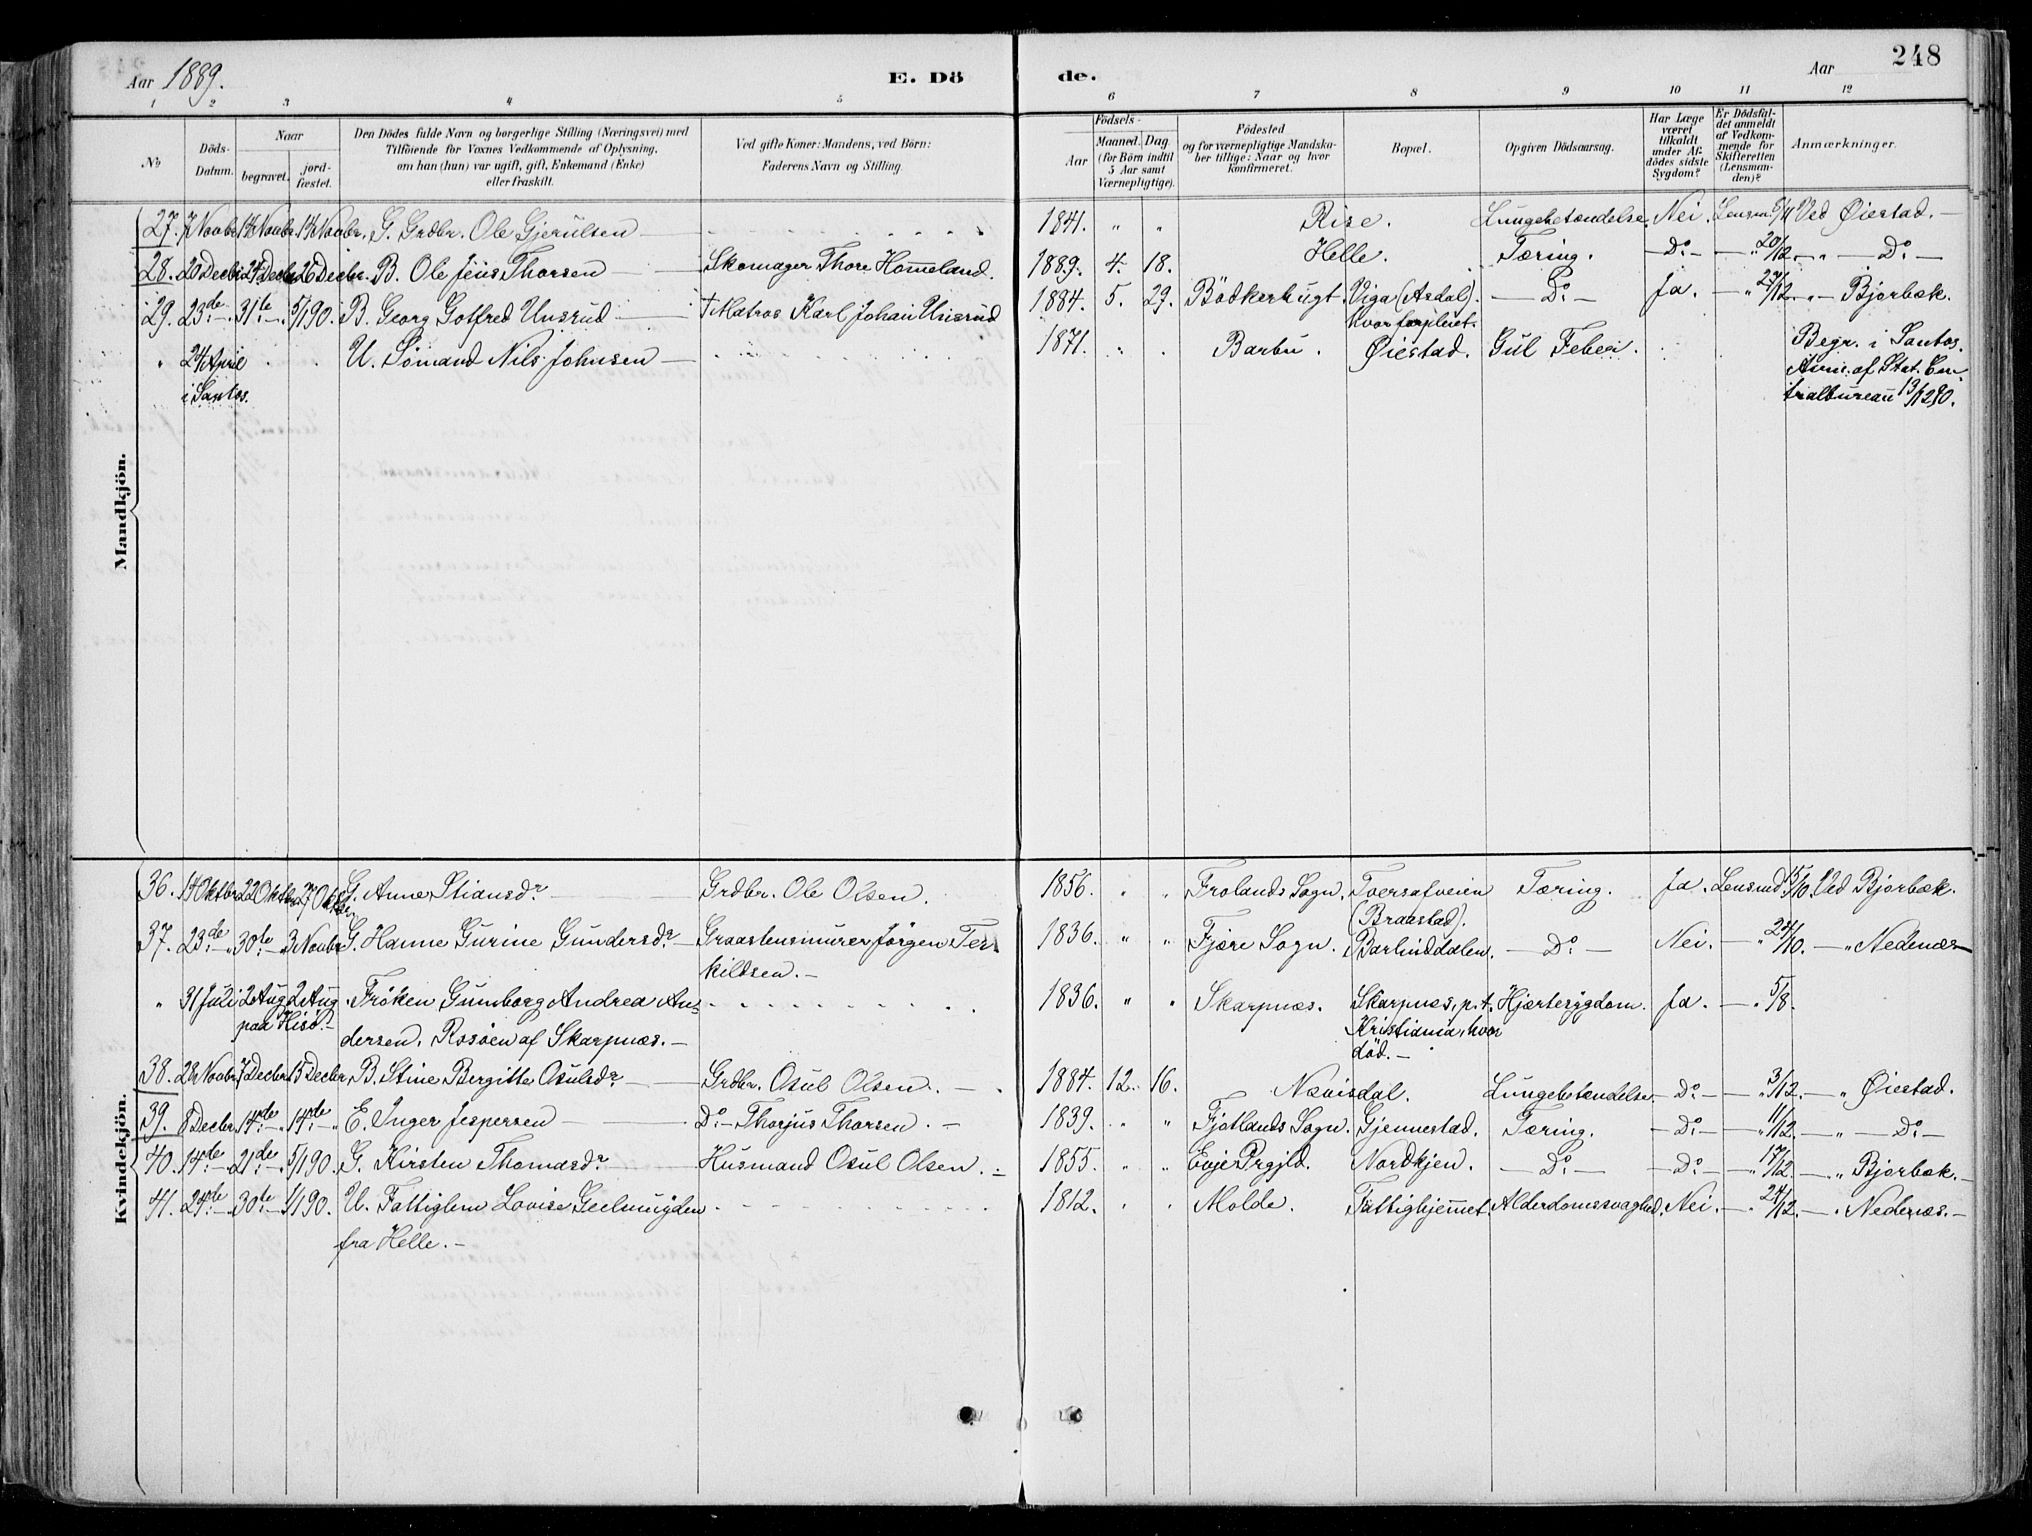 Aar 1889. E. Dö de. Aar 248
1 2 3 4 5 6 7 8 9 10 11 12
No Döds-Datum. Naar begravet. jord-fæstet. Den Dödes fulde Navn og borgerlige Stilling (Næringsvei) med Tilföiende for Voxnes Vedkommende af Oplysning, om han (hun) var ugift, gift, Enkemand (Enke) eller fraskilt. Ved gifte Koner: Mandens, ved Börn: Faderens Navn og Stilling. Födsels- Aar Maaned. Dag (for Börn indtil 5 Aar samt Værnepligtige). Födested og for værnepligtige Mandskaber tillige: Naar og hvor konfirmeret. Bopæl. Opgiven Dödsaarsag. Har Læge været tilkaldt under Afdödes sidste Sygdom? Er Dödsfaldet anmeldt af Vedkommende for Skifteretten (Lensmanden)? Anmærkninger.
Mandkjön.
27. 7 Novbr 14 Novbr. 14 Novbr. G. Grdbr. Ole Gjerulsen — 1841. " " Rise. Lungebetændelse. Nei. Lensm. /11 Ved Øiestad. —
28. 20 Decbr 24 Decbr 26 Decbr. B. Ole Jens Thorsen — Skomager Thore Homeland. 1889. 4. 18. Helle. Tæring. — Do — — " 20/12. — " — Do —
29. 23de — 31te — 5/1 90. B. Georg Gotfred Unsrud — † Matros Karl Johan Unsrud 1884. 5. 29. Bödkerbugt. Viga (Asdal). — Do — Ja. — " 27/12. — " — Bjorbæk.
hvor forpleiet.
" 24 April U. Sömand Nils Johnsen — 1871. " . Barbu. Øiestad. Gul Feber. Begr. i Santos.
i Santos. Anm. af Stat. Cen-
tralbureau 13/12 90.
Kvindekjön.
36. 14 Oktbr 22 Oktbr 27 Oktbr G. Anne Stiansdr — Grdbr. Ole Olsen. 1856. " " Frolands Sogn. Tversafveien Tæring. Ja. Lensmd 15/10. Ved Bjorbæk.
(Braastad).
37. 23de — 30te — 3 Novbr G. Hanne Gurine Gundersdr — Graastensmurer Jørgen Ter- 1836. " " Fjære Sogn. Barlinddalen. — Do — Nei. — " 24/10. — " Nedenæs —
kildsen. —
" 31 Juli 2 Aug 2 Aug. Frøken Gunborg Andrea An- 1836. " " Skarpnæs. Skarpnæs, p.t. Hjertesygdom. Ja. — " 5/8.
paa Hisö. — dersen, Rosöen af Skarpnæs. — Kristiania, hvor
död. —
38. 28 Novbr 7 Decbr. 15 Decbr. B. Stine Bergitte Osulsdr — Grdbr. Osul Olsen. — 1884. 12. 16. Nævisdal. Lungebetændelse — Do — — " 3/12. — " Øiestad.
39. 8 Decbr. 14de — 14de — " E. Inger Jespersen — Do — Thorjus Thorsen. — 1839. " " Fjotlands Sogn. Gjennestad. Tæring. — Do — — " 11/12. — " — Do —
40. 14de — 21de — 5/1 90. G. Kirsten Thomasdr — Husmand Osul Olsen. — 1855. " " Evje Prgjld. Nordkjen. — Do — — Do — — " 17/12. — " Bjorbæk. —
41. 24de — 30te — 1/1 90. U. Fattiglem Lovise Geelmuyden 1812. " " Molde. Fattighjemmet. Alderdomssvaghed. Nei. — " 24/12. — " Nedenæs. —
fra Helle. —